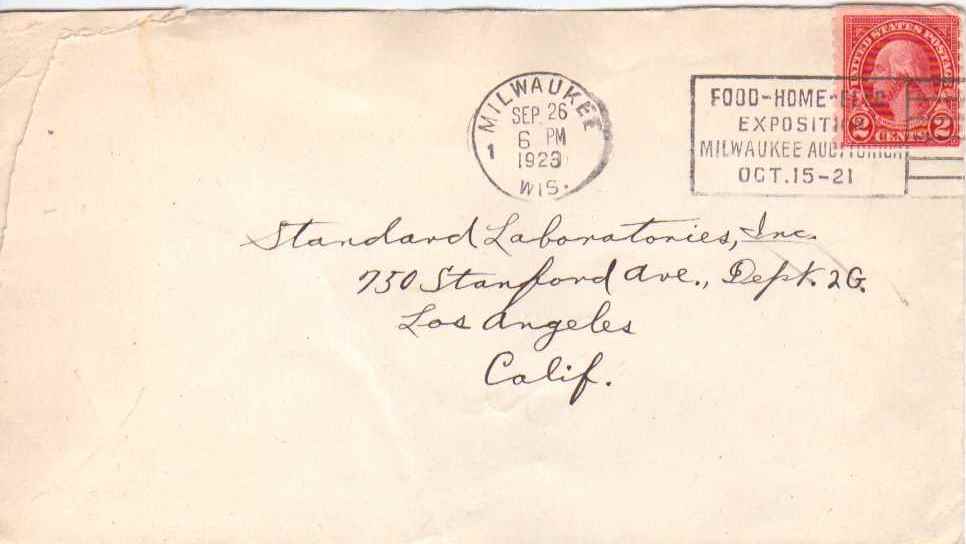 UNITED STATES POSTAGE
2 CENTS 2
MILWAUKEE
SEP. 26
6 PM
1
1923
WIS.
FOOD-HOME-
EXPOSITIO
MILWAUKEE AUDITORIUM
OCT. 15-21
Standard Laboratories, Inc.
750 Stanford Ave., Dept. 2G.
Los Angeles
Calif.